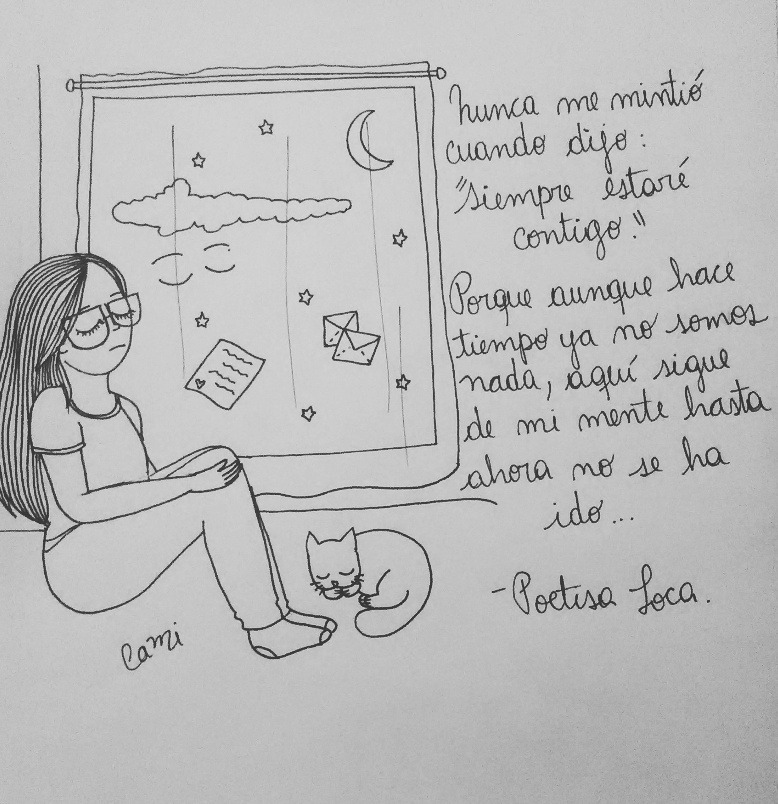 Nunca me mintió
cuando dijo:
"Siempre estaré
contigo."
Porque aunque hace
tiempo ya no somos
nada, aquí sigue
de mi mente hasta
ahora no se ha
ido...
-Poetisa Loca.
Cami